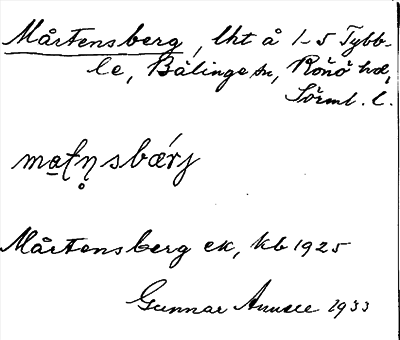 Mårtensberg, lht å 1-5 Tybb-
le, Bälinge sn, Rönö hd,
Sörml. l.
Mårtensberg ek, kb 1925
Gunnar 1933